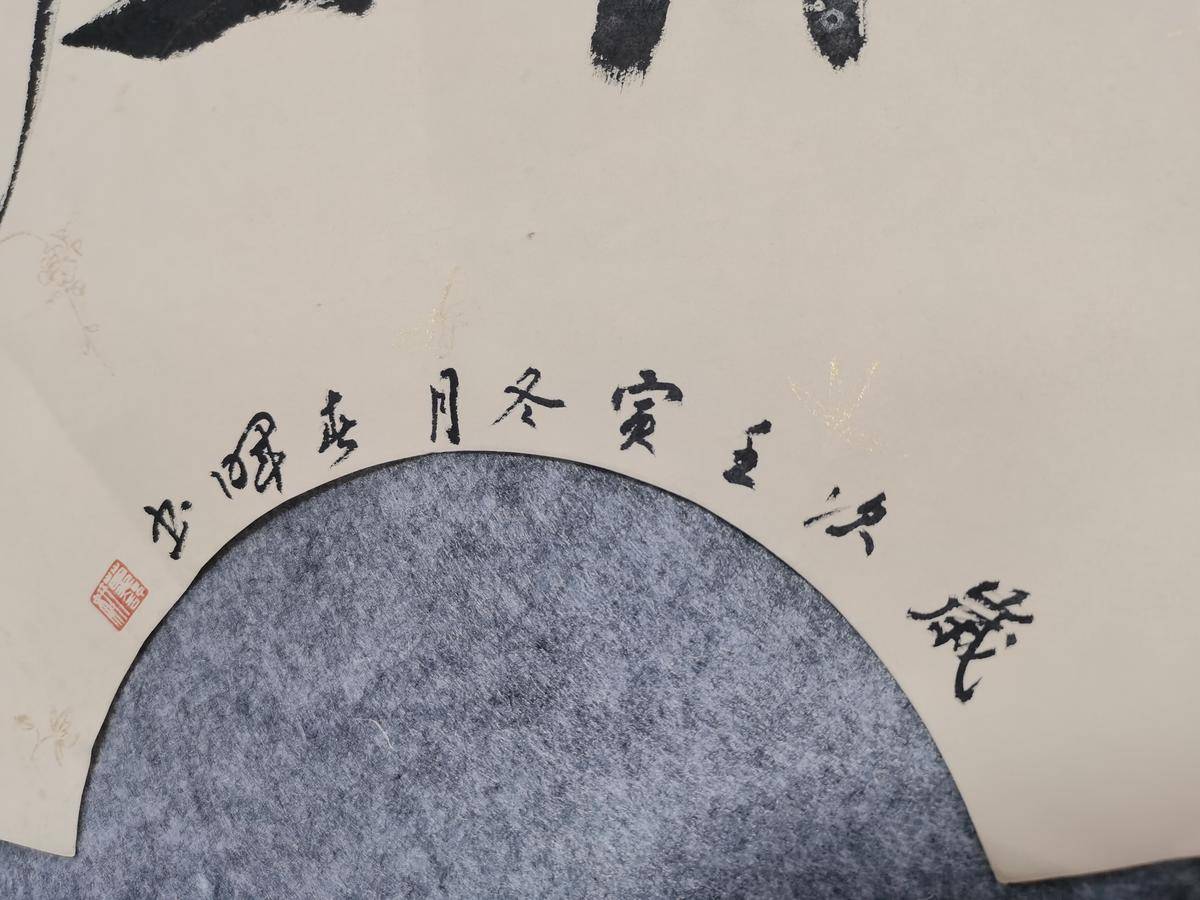 歲次壬寅冬月春暉书